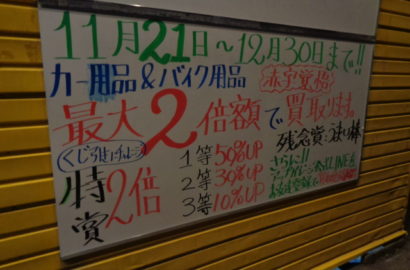 11月21日～12月30日まで!!
カー用品&バイク用品 赤字覚悟
最大2倍額で買取ります。
くじ引き 残念賞:うまい棒
特賞 2倍
1等 50%UP
2等 30%UP
3等 10%UP
さらに!!
LINE